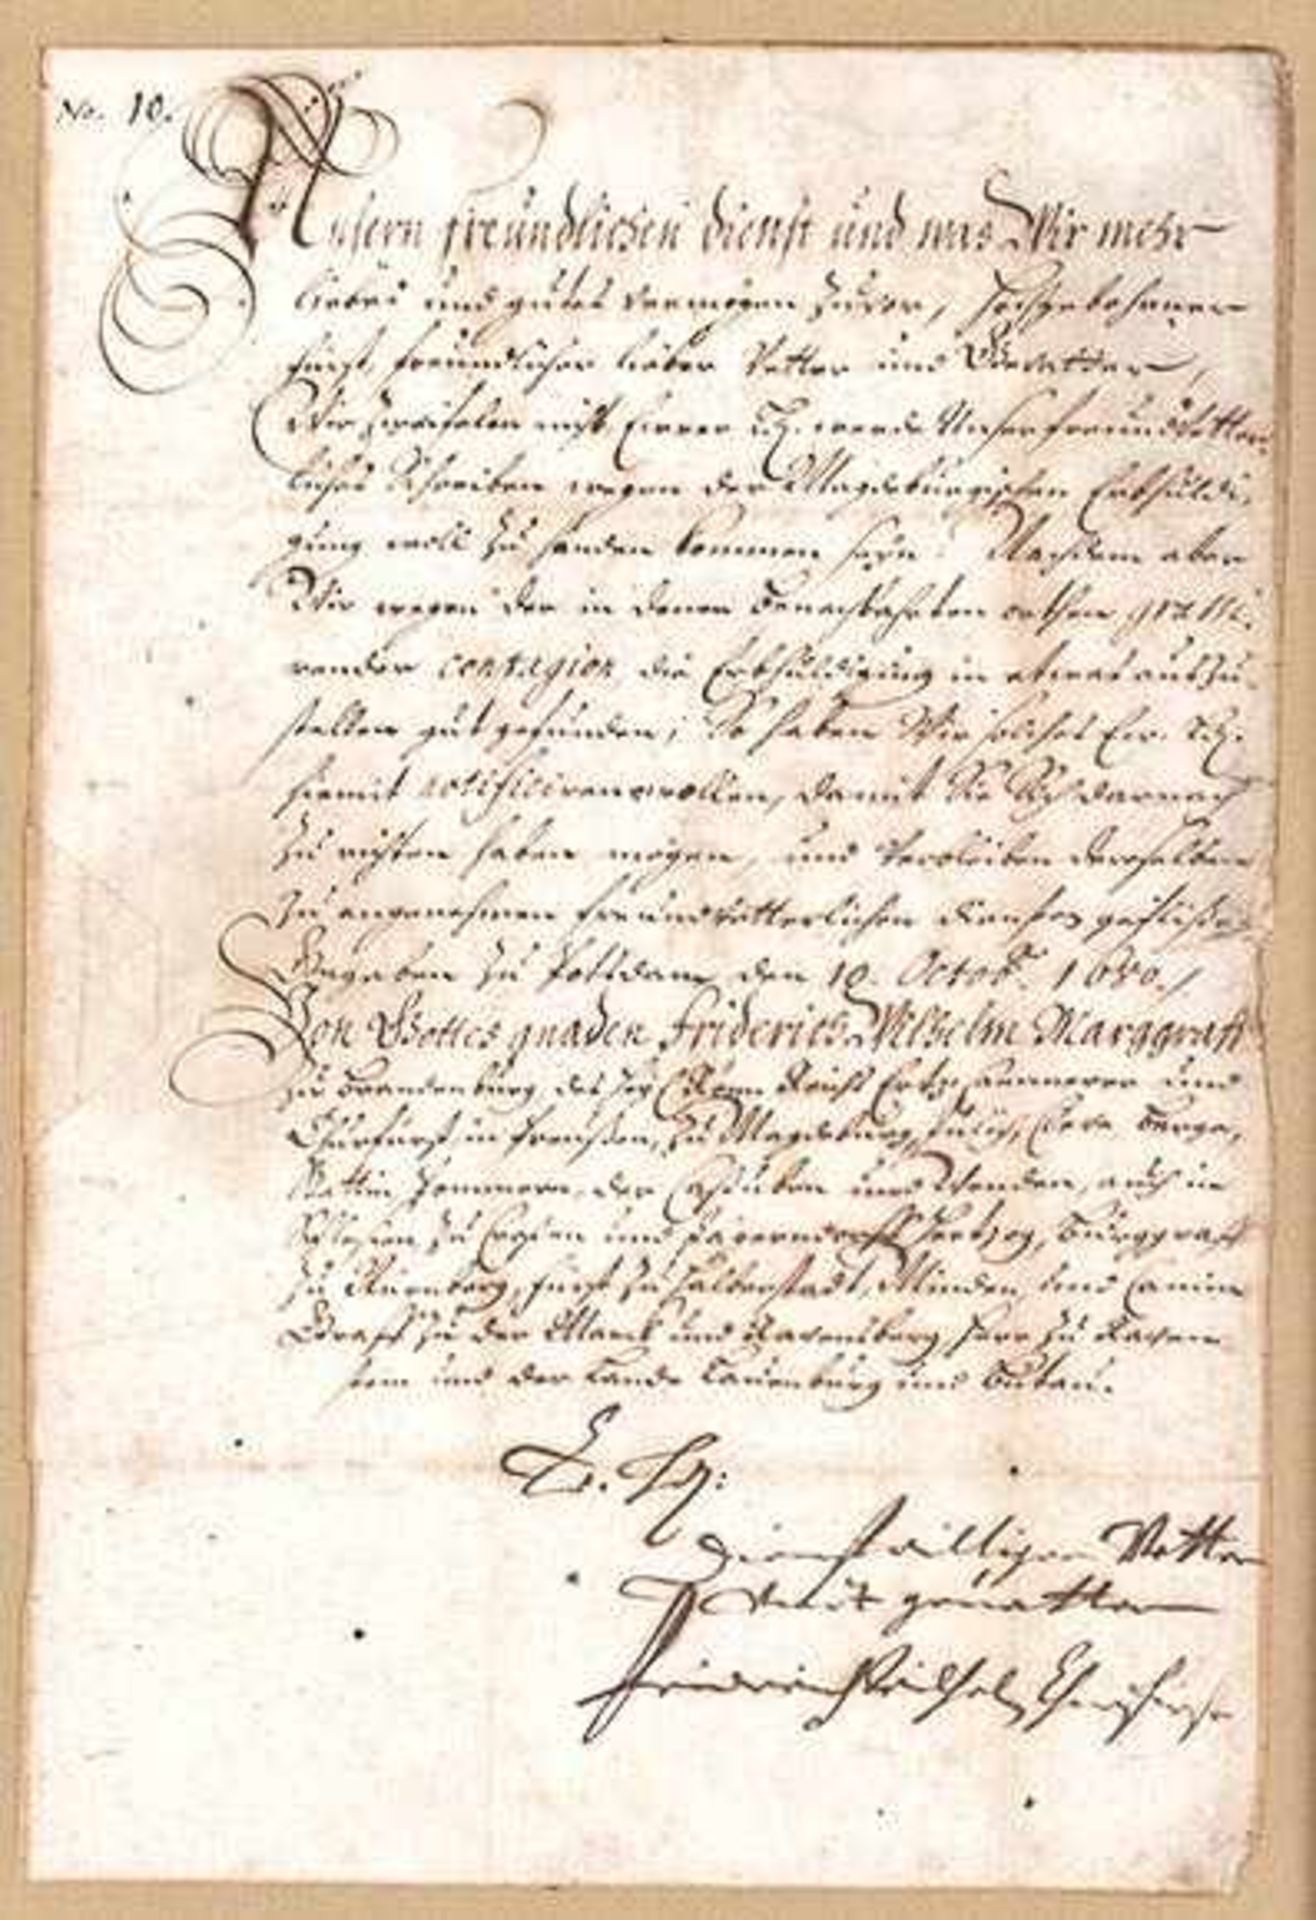 No. 10.
Unsern freundlichen dienst und was Wir mehr
liebes und gutes vermögen zuvor, Hochgebohrner
Fürst, freundlicher lieber Vetter und Gevatter,
Wir zweifelen nicht Ewer Ld. werde Unser freundvetter-
liches Schreiben wegen der Magdeburgischen Erbhuldi-
gung woll zu handen kommen seyn. Nachdem aber
Wir wegen der in denen benachbahrten orthen grassi-
render contagion die Erbhuldigung in etwas auszu-
stellen gut gefunden; So haben Wir solches Ew. Ld.
hiemit notificiren wollen, damit Sie Sich darnach
zu richten haben mögen, und verbleiben deroselben
zu angenehmen freundvetterlichen diensten geflissen
Gegeben zu Potsdam den 10. Octob. 1680.
Von Gottes gnaden Friderich Wilhelm Marggraff
zu Brandenburg des Heyl. Röm. Reichs Ertz Cammerer und
Churfürst, in Preußen, zu Magdeburg, Jülich, Cleve, Berge,
Stettin, Pommern, der Caßuben und Wenden, auch in
Schlesien zu Croßen und Jägerndorff Hertzog, Burggraff
zu Nürnberg, Fürst zu Halberstadt, Minden und Camin
Graff zu der Marck und Ravensberg, Herr zu Raven-
stein und der Lande Lauenburg und Bütau.
E. Ld.
Dienstwilliger Vetter
undt gevatter
Friderich Wilhelm Churfürst